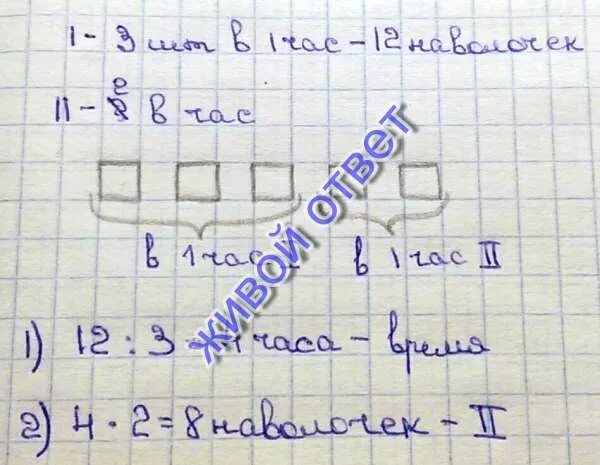 I - 3 шт в 1 час - 12 наволочек
II - 2 в час
в 1 час I в 1 час II
1) 12 : 3 = 4 часа - время
2) 4 · 2 = 8 наволочек - II
ЖИВОЙ ОТВЕТ